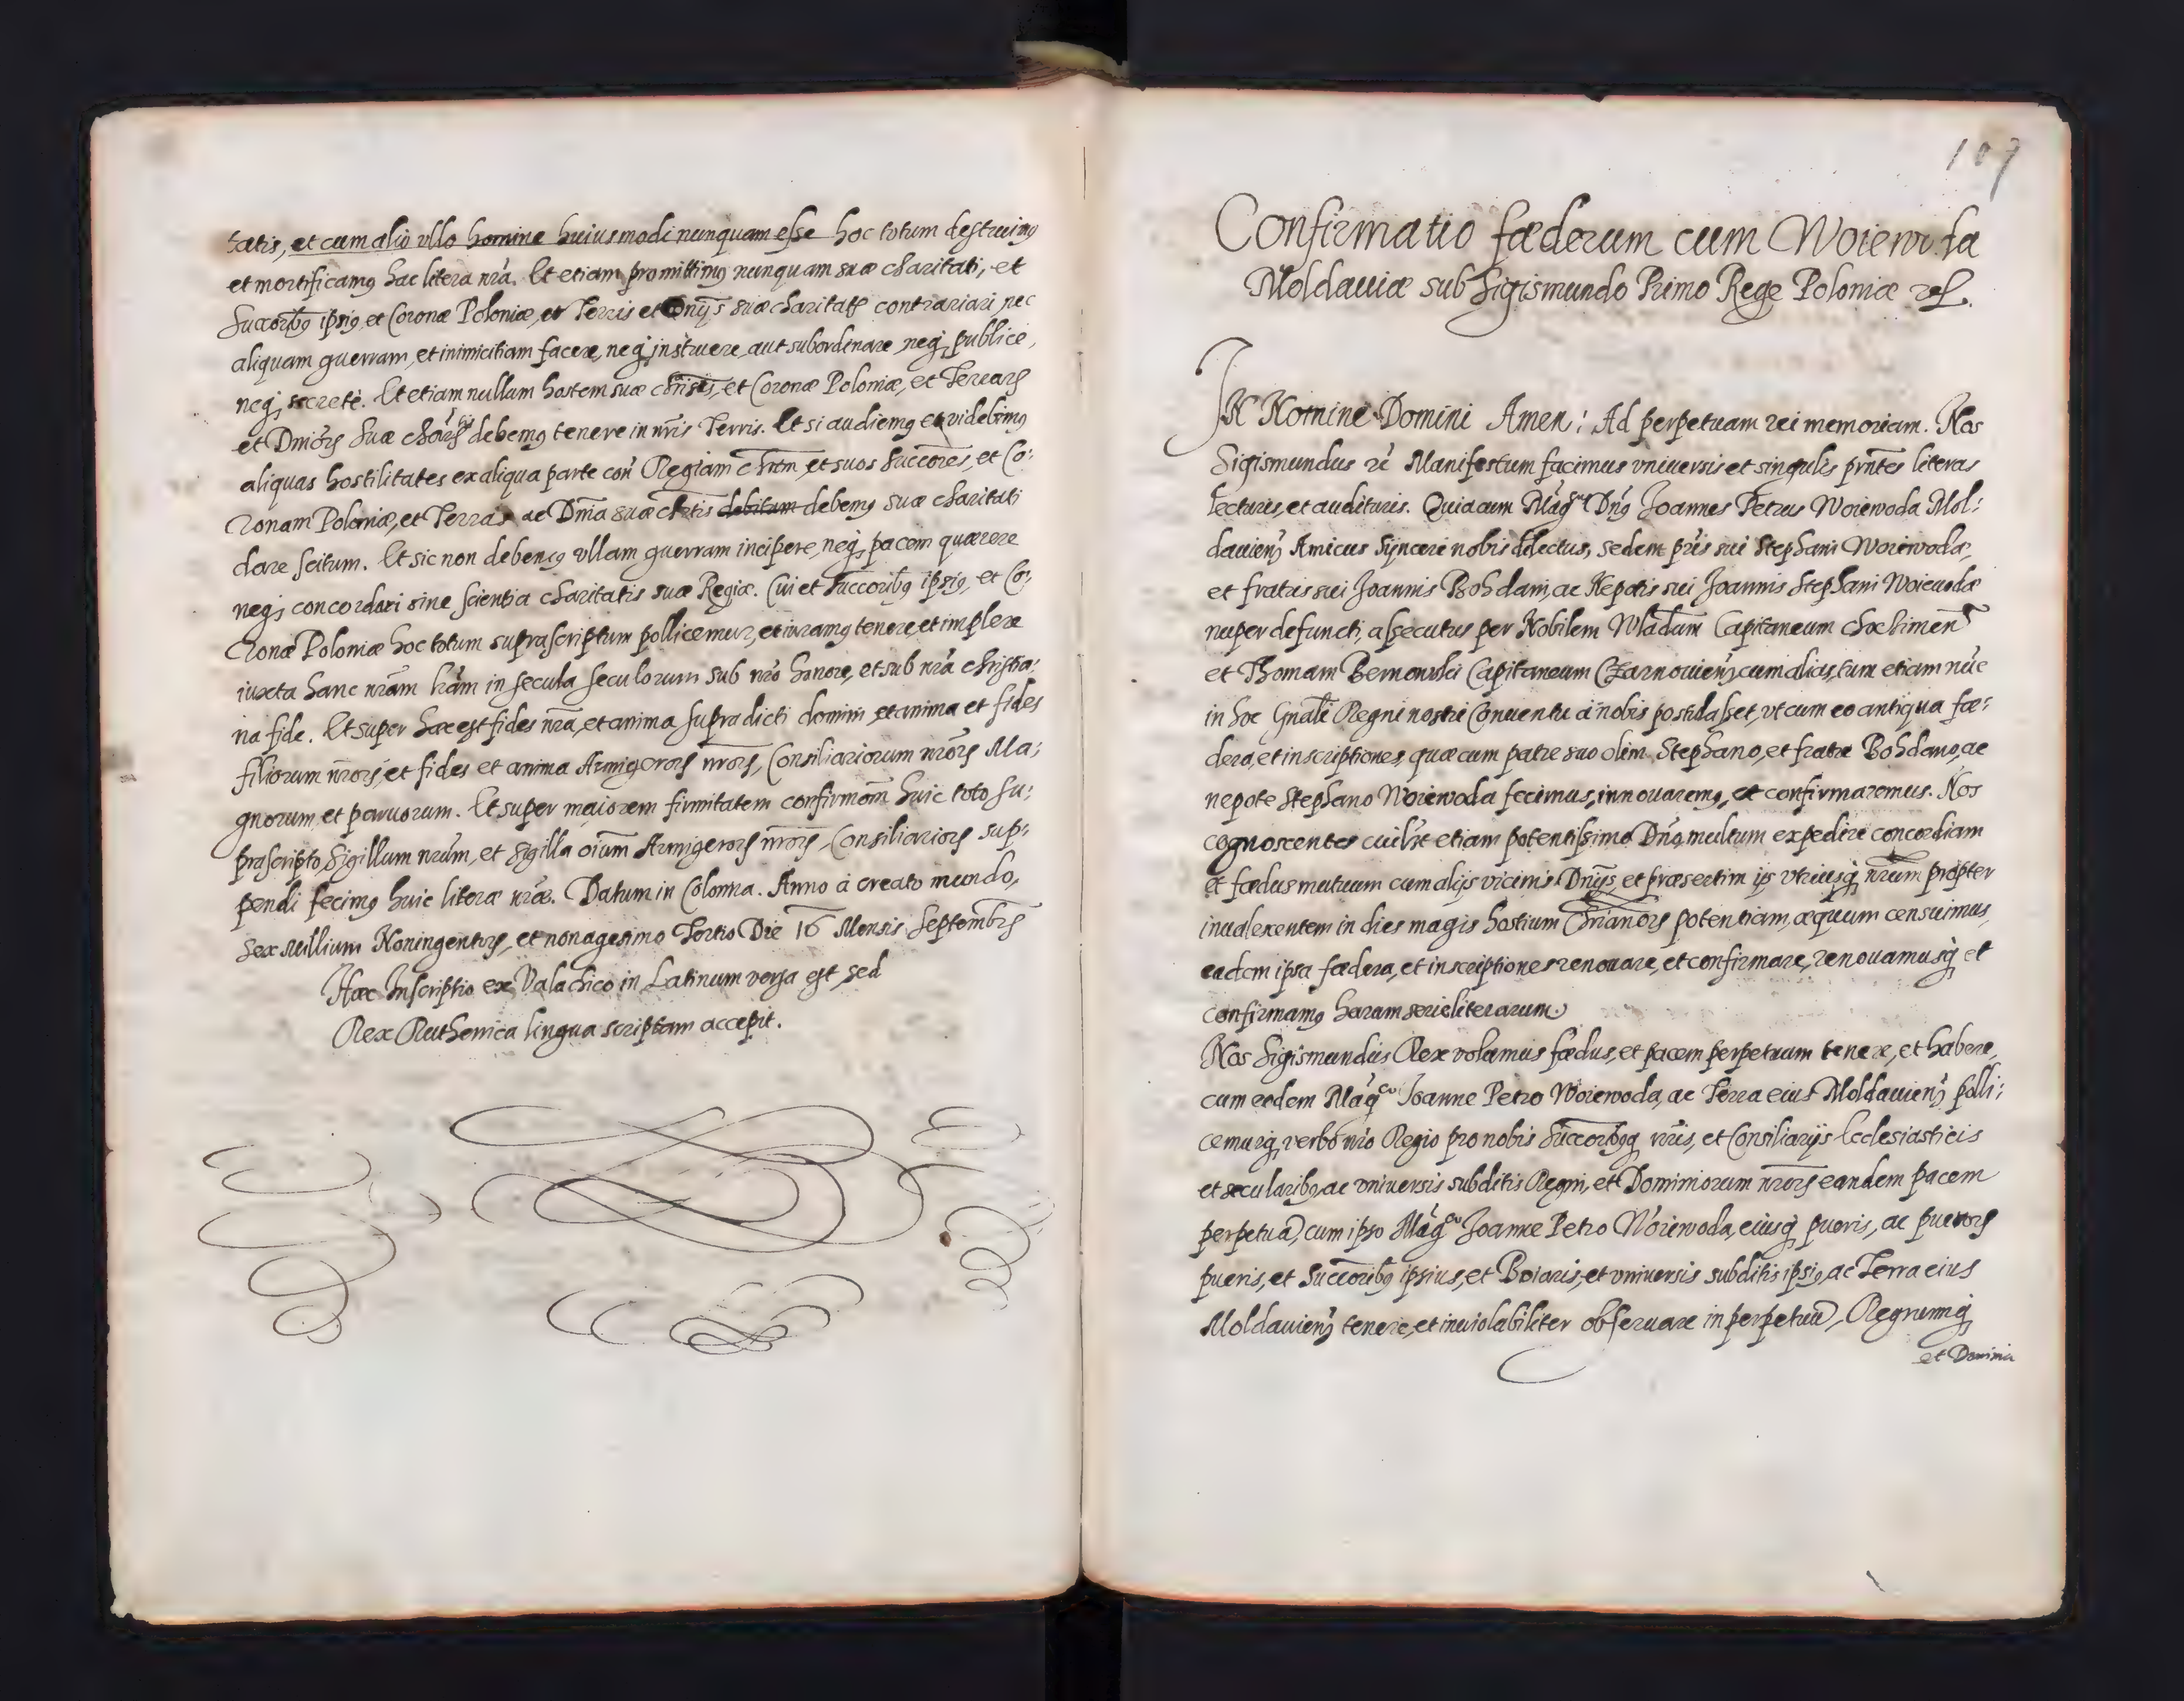 tatis, et cum alio ullo homine huiusmodi nunquam esse hoc totum destruimꝰ
et mortificamꝰ hac litera nrã. Et etiam promittimꝰ nunquam suæ charitati, et
Succoribꝰ ipsiꝰ et Coronæ Poloniæ, et Terris et Dnijs suæ charitatꝭ contrariari, nec
aliquam guerram, et inimicitiam facere, neqꝫ instruere, aut subordinare neqꝫ publice,
neqꝫ secretè. Et etiam nullum hostem suæ chrtis, et Coronæ Poloniæ, et Terrarꝝ
et Dniorꝝ suæ debemꝰ tenere in nrĩs Terris. Et si audiemꝰ et videbimꝰ
aliquas hostilitates ex aliqua parte con Regiam chtem, et suos Succores, et Co:
ronam Poloniæ, et Terras ac Dnia suæ chrtis debitum debemꝰ suæ charitati
dare scitum. Et sic non debemꝰ vllam guerram incipere, neqꝫ pacem quærere
neqꝫ concordari sine scientia charitatis suæ Regiæ. Cui et Succoribꝰ ipsiꝰ, et Co:
ronæ Poloniæ hoc totum suprascriptum pollicemur, et iuramꝰ tenere, et implere
iuxta hanc nrãm lrãm in secula seculorum sub nrõ honore, et sub nrã christia:
na fide. Et super hæc est fides nrã, et anima supradicti domini, et anima et fides
filiorum nrorꝝ, et fides et anima Armigerorꝝ nrorꝝ, Consiliariorum nrorꝝ Ma:
gnorum et paruorum. Et super maiorem firmitatem confirmõm huic toto su:
prascripto, Sigillum nrũm, et Sigilla oiũm Armigerorꝝ nrorꝝ, Consiliariorꝝ sup:
pendi fecimꝰ huic literæ nræ. Datum in Colonna. Anno à creato mundo,
sex Millium Noningentorꝝ, et nonagesimo Tertio Die 16 Mensis Septembrꝭ
Hæc Inscriptio ex Valachico in Latinum versa est, sed
Rex Ruthenica lingua scriptam accepit.
107
Confirmatio fæderum cum Woiewoda
Moldauiæ sub Sigismundo Primo Rege Poloniæ
IN Nomine Domini Amen: Ad perpetuam rei memoriam. Nos
Sigismundus Manifestum facimus vniuersis et singulis prñtes literas
lecturis, et audituris. Quia cum Magcus Dnꝰ Joannes Petrus Woiewoda Mol:
dauienꝭ Amicus Syncere nobis dilectus, sedem pris sui Stephani Woiewodæ,
et fratris sui Joannis Bohdani, ac Nepotis sui Joannis Stephani Woieuodæ
nuper defuncti, assecutus per Nobilem Wladam Capitaneum
et Thomam Capitaneum Czarnouienꝭ cum alias, tum etiam nũc
in hoc Gnãli Regni nostri Conuentu à nobis postulasset, vt cum eo antiqua fæ:
dera, et inscriptiones, quæ cum patre suo olim Stephano, et fratre Bohdano, ac
nepote Stephano Woiewoda fecimus, innouaremꝰ, et confirmaremus. Nos
cognoscentes cuilibet etiam potentissimo Dnõ multum expedire concordiam
et fædus mutuum cum alijs vicinis Dnijs, et præsertim ijs vtriusqꝫ nrũm propter
inualescentem in dies magis hostium potentiam, æquum censuimus,
eadem ipsa fædera, et inscriptiones renouare, et confirmare, renouamusqꝫ et
confirmamꝰ harum serie literarum.
Nos Sigismundus Rex volumus fædus, et pacem perpetuam tenere, et habere,
cum eodem Magco Joanne Petro Woiewoda, ac Terra eius Moldauienꝭ polli:
cemurqꝫ verbo nrõ Regio pro nobis Succoribꝰqꝫ nrĩs, et Consiliarijs Ecclesiasticis
et secularibꝰ, ac vniuersis subditis Regni, et Dominiorum nrorꝝ eandem pacem
perpetuã, cum ipso Magco Joanne Petro Woiewoda, eiusqꝫ pueris, ac puerorꝝ
pueris, et Succoribꝰ ipsius, et Boiaris, et vniuersis subditis ipsiꝰ, ac Terra eius
Moldauienꝭ tenere, et inuiolabiliter obseruare in perpetuũ, Regnumqꝫ
et Dominia